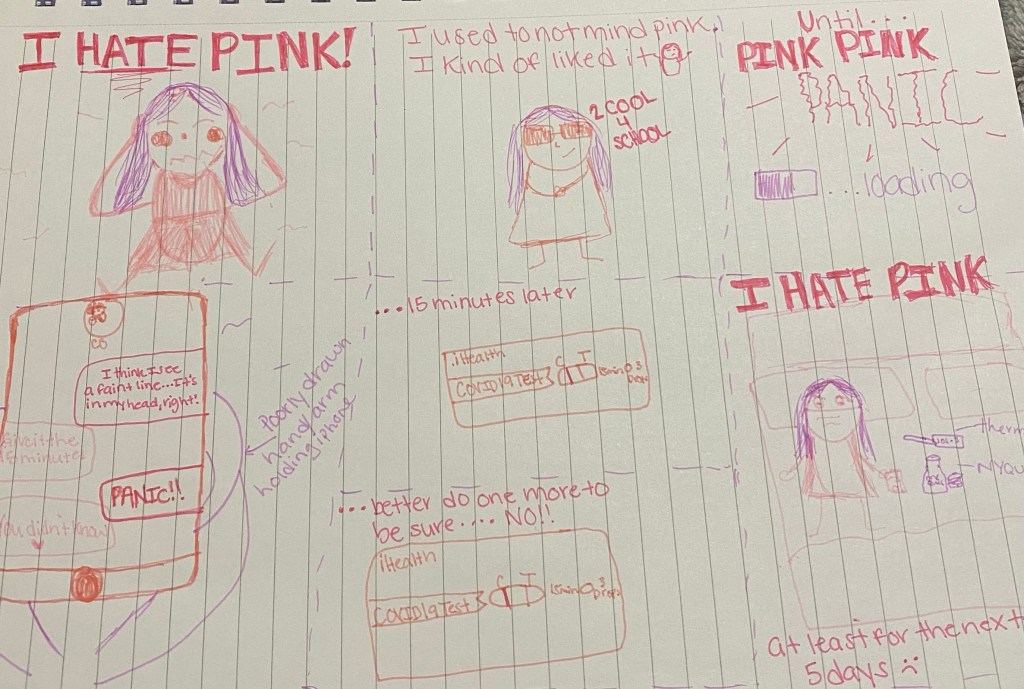 I HATE PINK!
I used to not mind pink.
I kind of liked it
2 COOL
4
SCHOOL
Until...
PINK PINK
PANIC
...loading
I think I see
a faint line...It's
in my head, right?
Give it the
minute
PANIC!!
You didn't know
Poorly drawn
hand/arm
holding iphone
...15 minutes later
iHealth
COVID19 Test
C T
15min
3
Drops
...better do one more to
be sure.... NO!!
iHealth
COVID19 Test
C T
15min
3
Drops
I HATE PINK
therm
NyQu
at least for the next
5 days